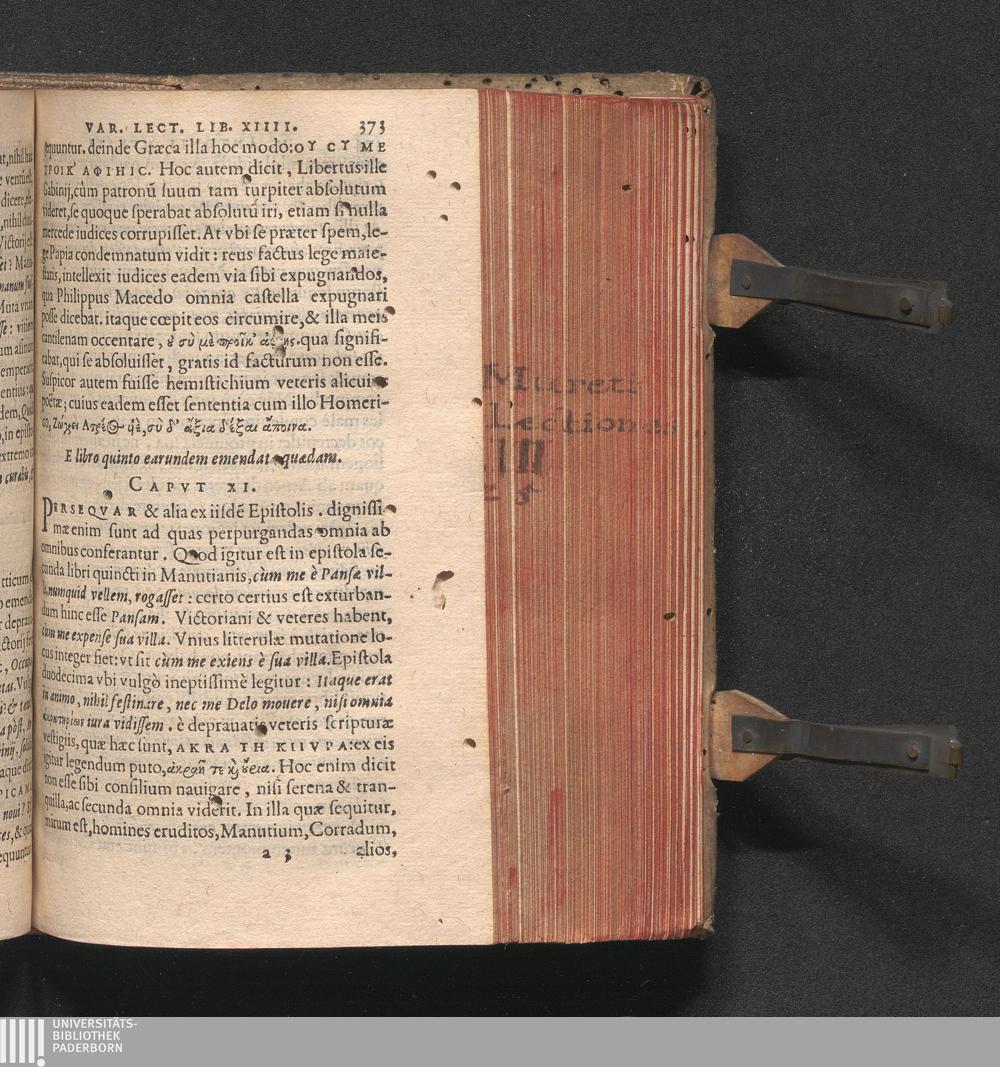 VAR. LECT. LIB. XIIII. 373
sequuntur. deinde Græca illa hoc modo: ΟΥ CΥ ΜΕ
ΠΡΟΙΚ' ΑΦΙΗΙC. Hoc autem dicit, Libertus ille
Gabinij, cùm patronū suum tam turpiter absolutum
videret, se quoque sperabat absolutū iri, etiam si nulla
mercede iudices corrupisset. At vbi se præter spem, le-
ge Papia condemnatum vidit: reus factus lege maie-
statis, intellexit iudices eadem via sibi expugnandos,
qua Philippus Macedo omnia castella expugnari
posse dicebat. itaque cœpit eos circumire, & illa meis
cantilenam occentare, οὐ σὺ μὲ προῖκ' qua signifi-
cabat, qui se absoluisset, gratis id facturum non esse.
Suspicor autem fuisse hemistichium veteris alicuius
poëtæ; cuius eadem esset sententia cum illo Homeri-
co, Ζώγρει Ατρέος υἱὲ, σὺ δ' ἄξια δέξαι ἄποινα.
E libro quinto earundem emendata quædam.
CAPVT XI.
PERSEQVAR & alia ex iisdē Epistolis. dignissi-
mæ enim sunt ad quas perpurgandas omnia ab
omnibus conferantur. Quod igitur est in epistola se-
cunda libri quincti in Manutianis, cùm me è Pansæ vil-
la, numquid vellem, rogasset: certo certius est exturban-
dum hinc esse Pansam. Victoriani & veteres habent,
cùm me expense sua villa. Vnius litterulæ mutatione lo-
cus integer fiet: vt sit cùm me exiens è sua villa. Epistola
duodecima vbi vulgò ineptissimè legitur: Itaque erat
in animo, nihil festinare, nec me Delo mouere, nisi omnia
ἀκρωτηρίων iura vidissem. è deprauatis veteris scripturæ
vestigiis, quæ hæc sunt, ΑΚRΑ ΤΗ ΚΙΙVΡΑ: ex eis
igitur legendum puto, ἀκραῆ τε κ οὔρια. Hoc enim dicit
non esse sibi consilium nauigare, nisi serena & tran-
quilla, ac secunda omnia viderit. In illa quæ sequitur,
mirum est, homines eruditos, Manutium, Corradum,
a 3 alios,
Mureti
Lectiones
UNIVERSITÄTS-
BIBLIOTHEK
PADERBORN